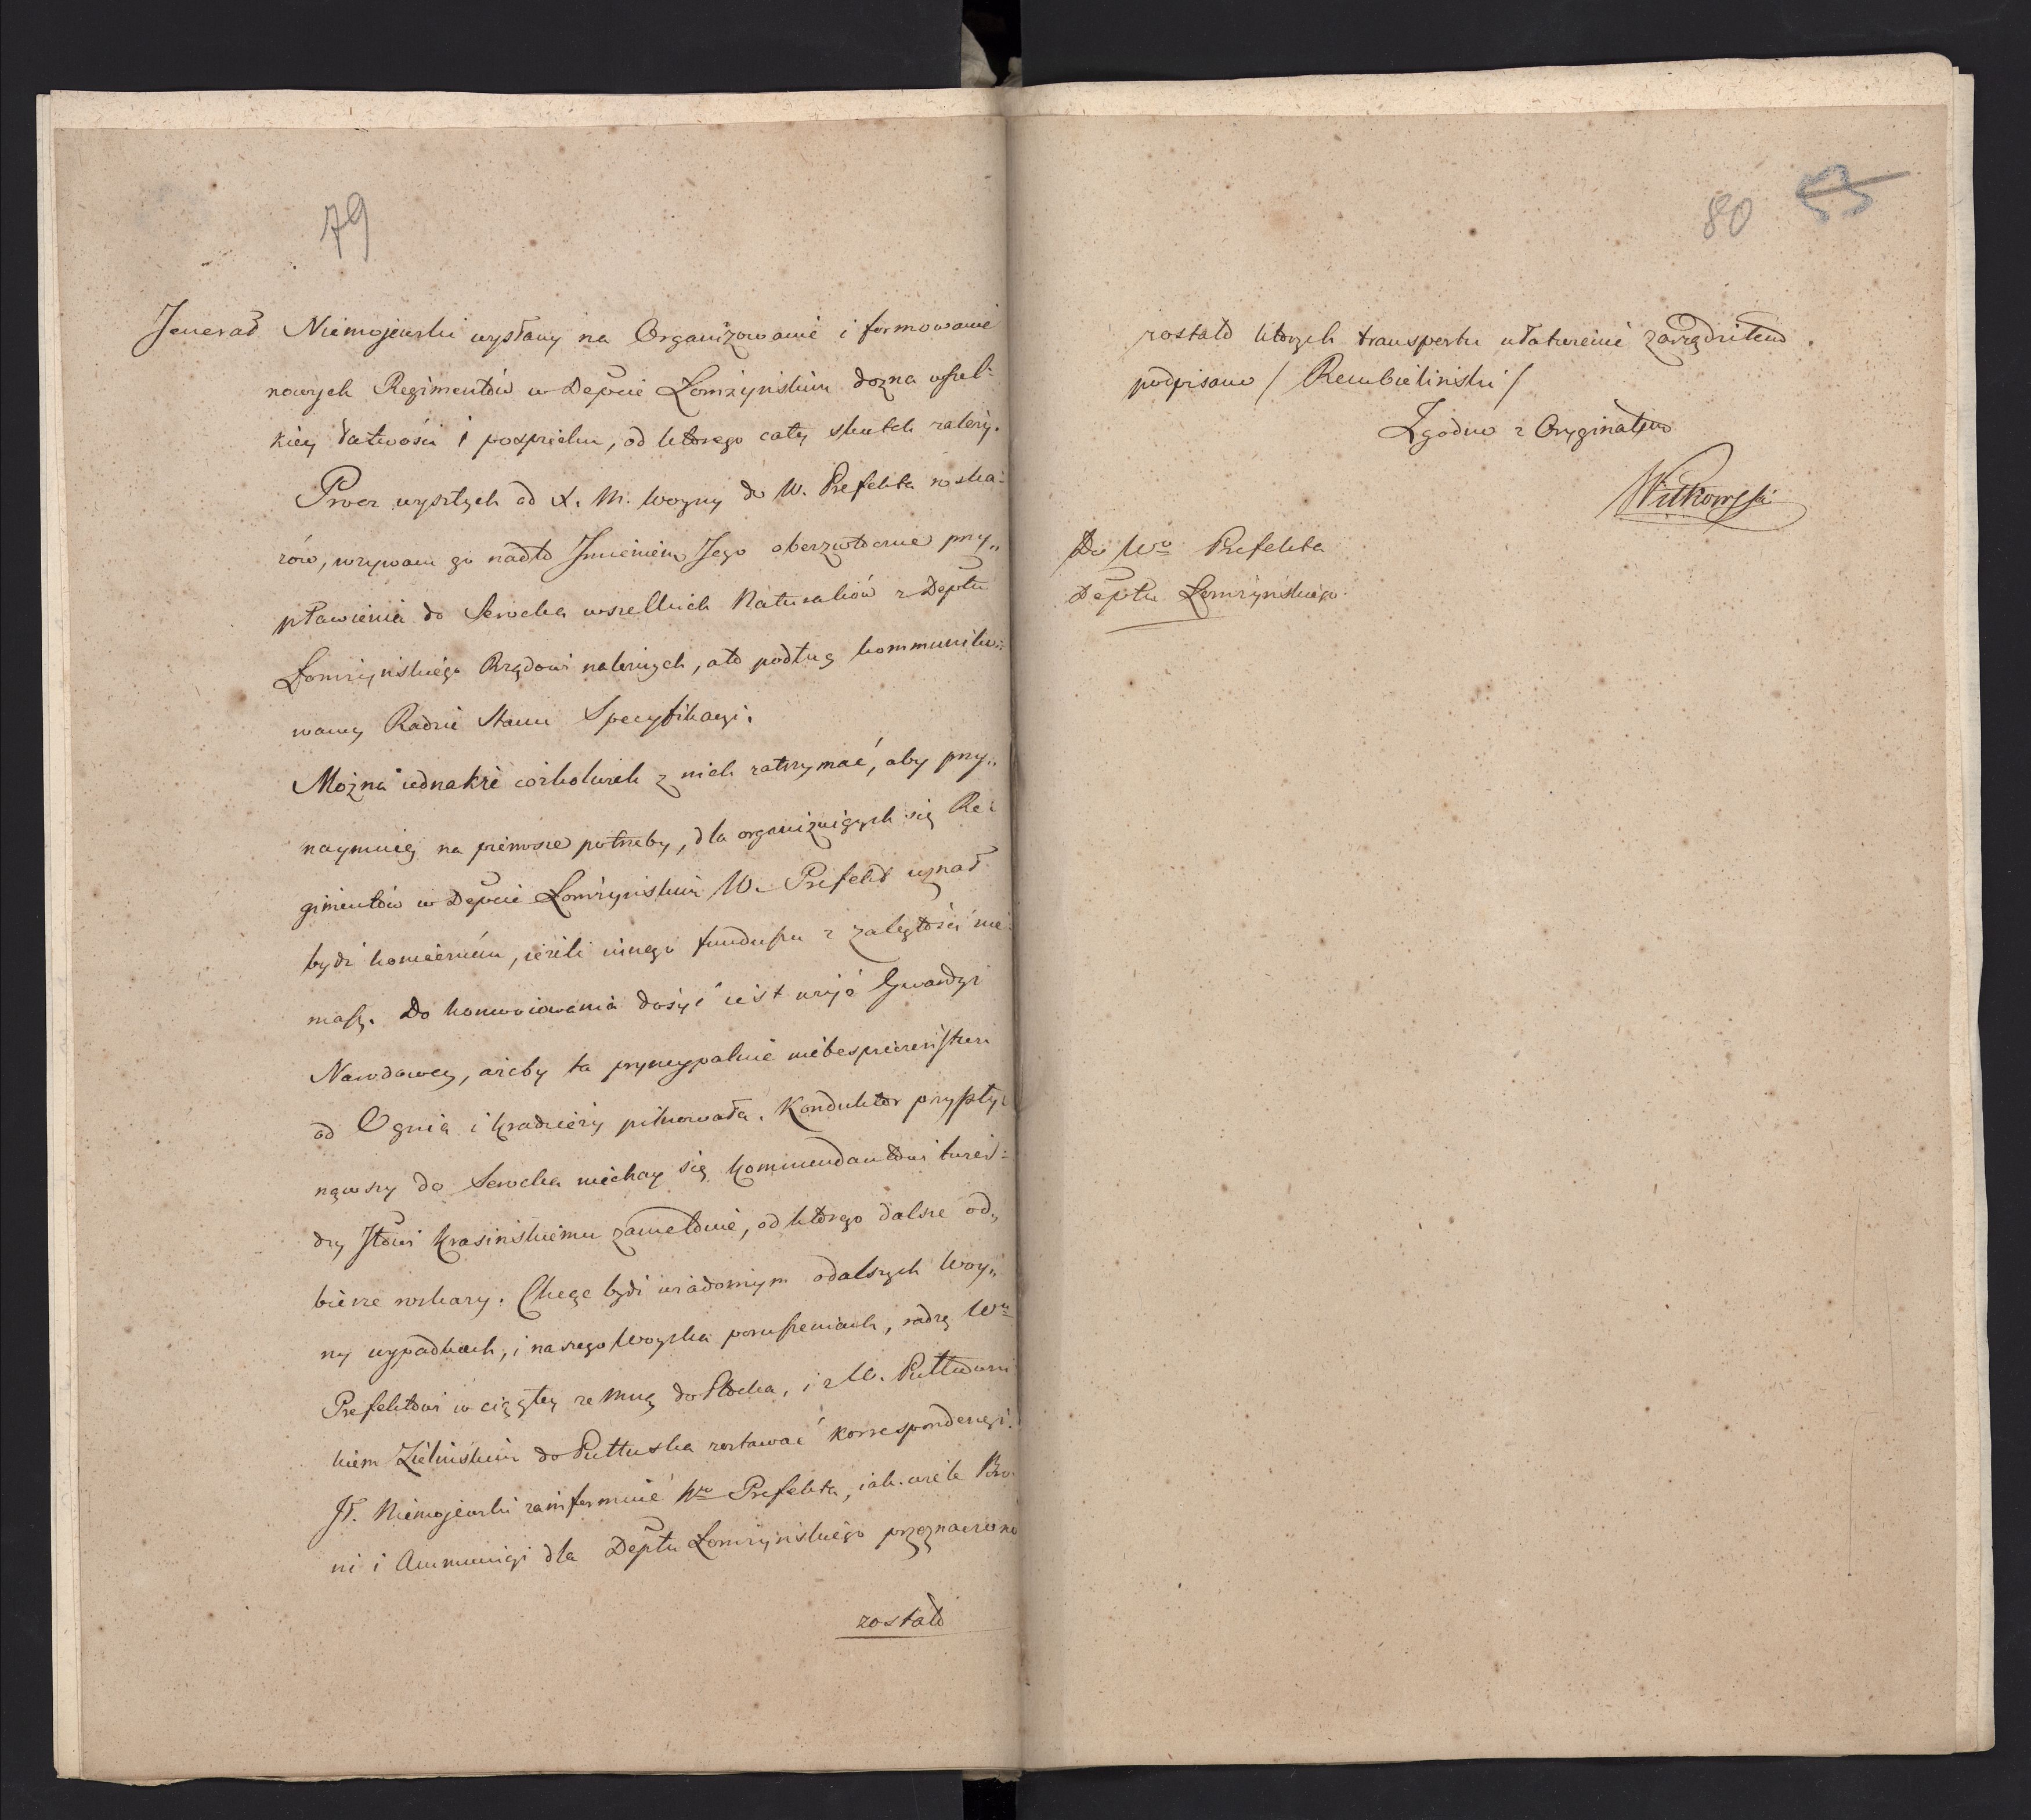 79
Jenerał Niemojewski wysłany na Organizowanie i formowanie
nowych Regimentów w Depcie Łomżyńskim dozna wszel-
kiey łatwości i pospiechu, od ktorego cały skutek zależy.
Procz wyszłych od X. M. Woyny do W. Prefekta roska-
zów, wzywam go nadto Imieniem Jego
pławienia do Serocka wszelkich Naturaliów z Deptu
Łomżyńskiego Rządowi należnych, a to podług kommuniko-
waney Radzie Stanu Specyfikacyi.
Można iednakże cożkolwiek z nich zatrzymać, aby przy„
naymniey na pierwsze potrzeby, dla organizuiących się Re-
gimentów w Depcie Łomżyńskim W. Prefekt uznał
bydź koniecznem, ieżeli innego funduszu z zaległości nie
masz. Do konwoiowania dosyć iest użyć Gwardyi
Narodowey, ażeby ta pryncypalnie niebespieczeństwu
od Ognia i kradzieży pilnowała. Konduktor przypły-
nąwszy do Serocka niechay się Kommendantowi twier-
dzy Jłowi Krasińskiemu zamelduie, od ktorego dalsze od„
bierze roskazy. Chcąc bydź wiadomym o dalszych Woy„
ny wypadkach, i naszego Woyska poruszeniach, radzę Wu
Prefektowi w ciągłey ze Mną do Płocka, i z W. Pułkowni
kiem Zielińskim do Pułtuska zostawać korrespondencyi.
Jł. Niemojewski zainformuie Wo Prefekta, iak wiele Bro
ni i Ammunicyi dla Deptu Łomżyńskiego przeznaczono
zostało
80
53
zostało ktorych transportu ułatwienie zarządzitem.
podpisano / Rembieliński /
Zgodno z Oryginałem
Witkowski
Do Wo Prefekta
Deptu Łomżyńskiego